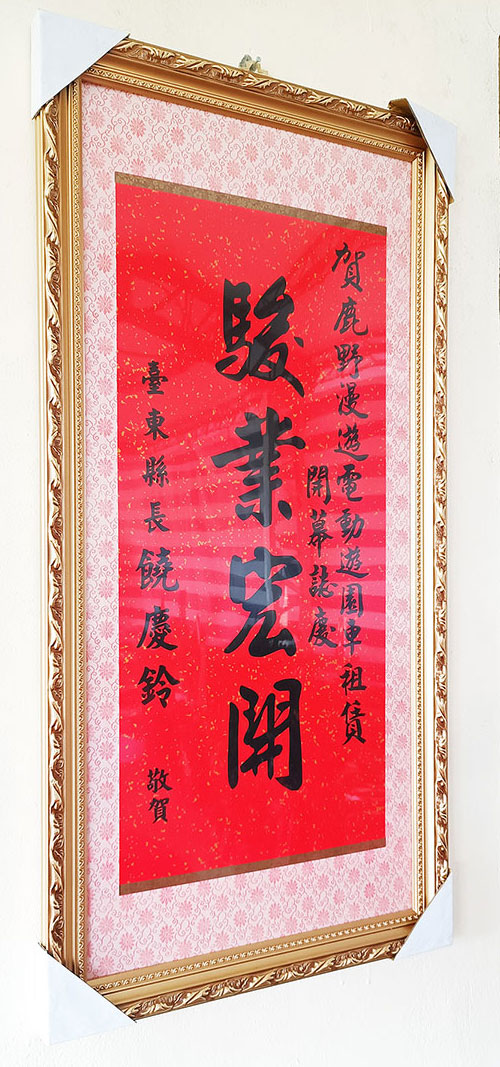 賀鹿野漫遊電動遊園車租賃
開幕誌慶
駿業宏開
臺東縣長饒慶鈴 敬賀